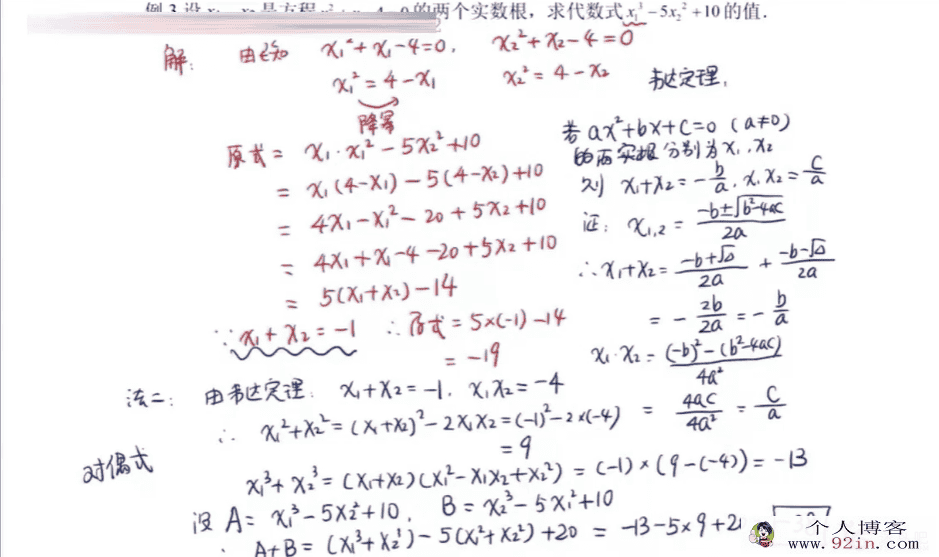 例3 设 是方程 的两个实数根，求代数式 x₁³−5x₂²+10 的值.
解： 由已知 x₁²+x₁−4=0, x₂²+x₂−4=0
x₁²=4−x₁ x₂²=4−x₂
降幂
原式= x₁·x₁²−5x₂²+10
= x₁(4−x₁)−5(4−x₂)+10
= 4x₁−x₁²−20+5x₂+10
= 4x₁+x₁−4−20+5x₂+10
= 5(x₁+x₂)−14
∵ x₁+x₂=−1 ∴ 原式=5×(−1)−14
= −19
韦达定理，
若 ax²+bx+c=0 (a≠0)
的两实根分别为 x₁, x₂
则 x₁+x₂=−b/a, x₁x₂=c/a
证： x₁,₂= (−b±√(b²−4ac))/2a
∴ x₁+x₂= (−b+√Δ)/2a + (−b−√Δ)/2a
= −2b/2a = −b/a
x₁·x₂= ((−b)²−(b²−4ac))/4a²
= 4ac/4a² = c/a
法二： 由韦达定理： x₁+x₂=−1, x₁x₂=−4
∴ x₁²+x₂²=(x₁+x₂)²−2x₁x₂=(−1)²−2×(−4)
=9
对偶式
x₁³+x₂³=(x₁+x₂)(x₁²−x₁x₂+x₂²)=(−1)×(9−(−4))=−13
设 A= x₁³−5x₂²+10, B= x₂³−5x₁²+10
A+B=(x₁³+x₂³)−5(x₁²+x₂²)+20 = −13−5×9+2
个人博客
www.92in.com